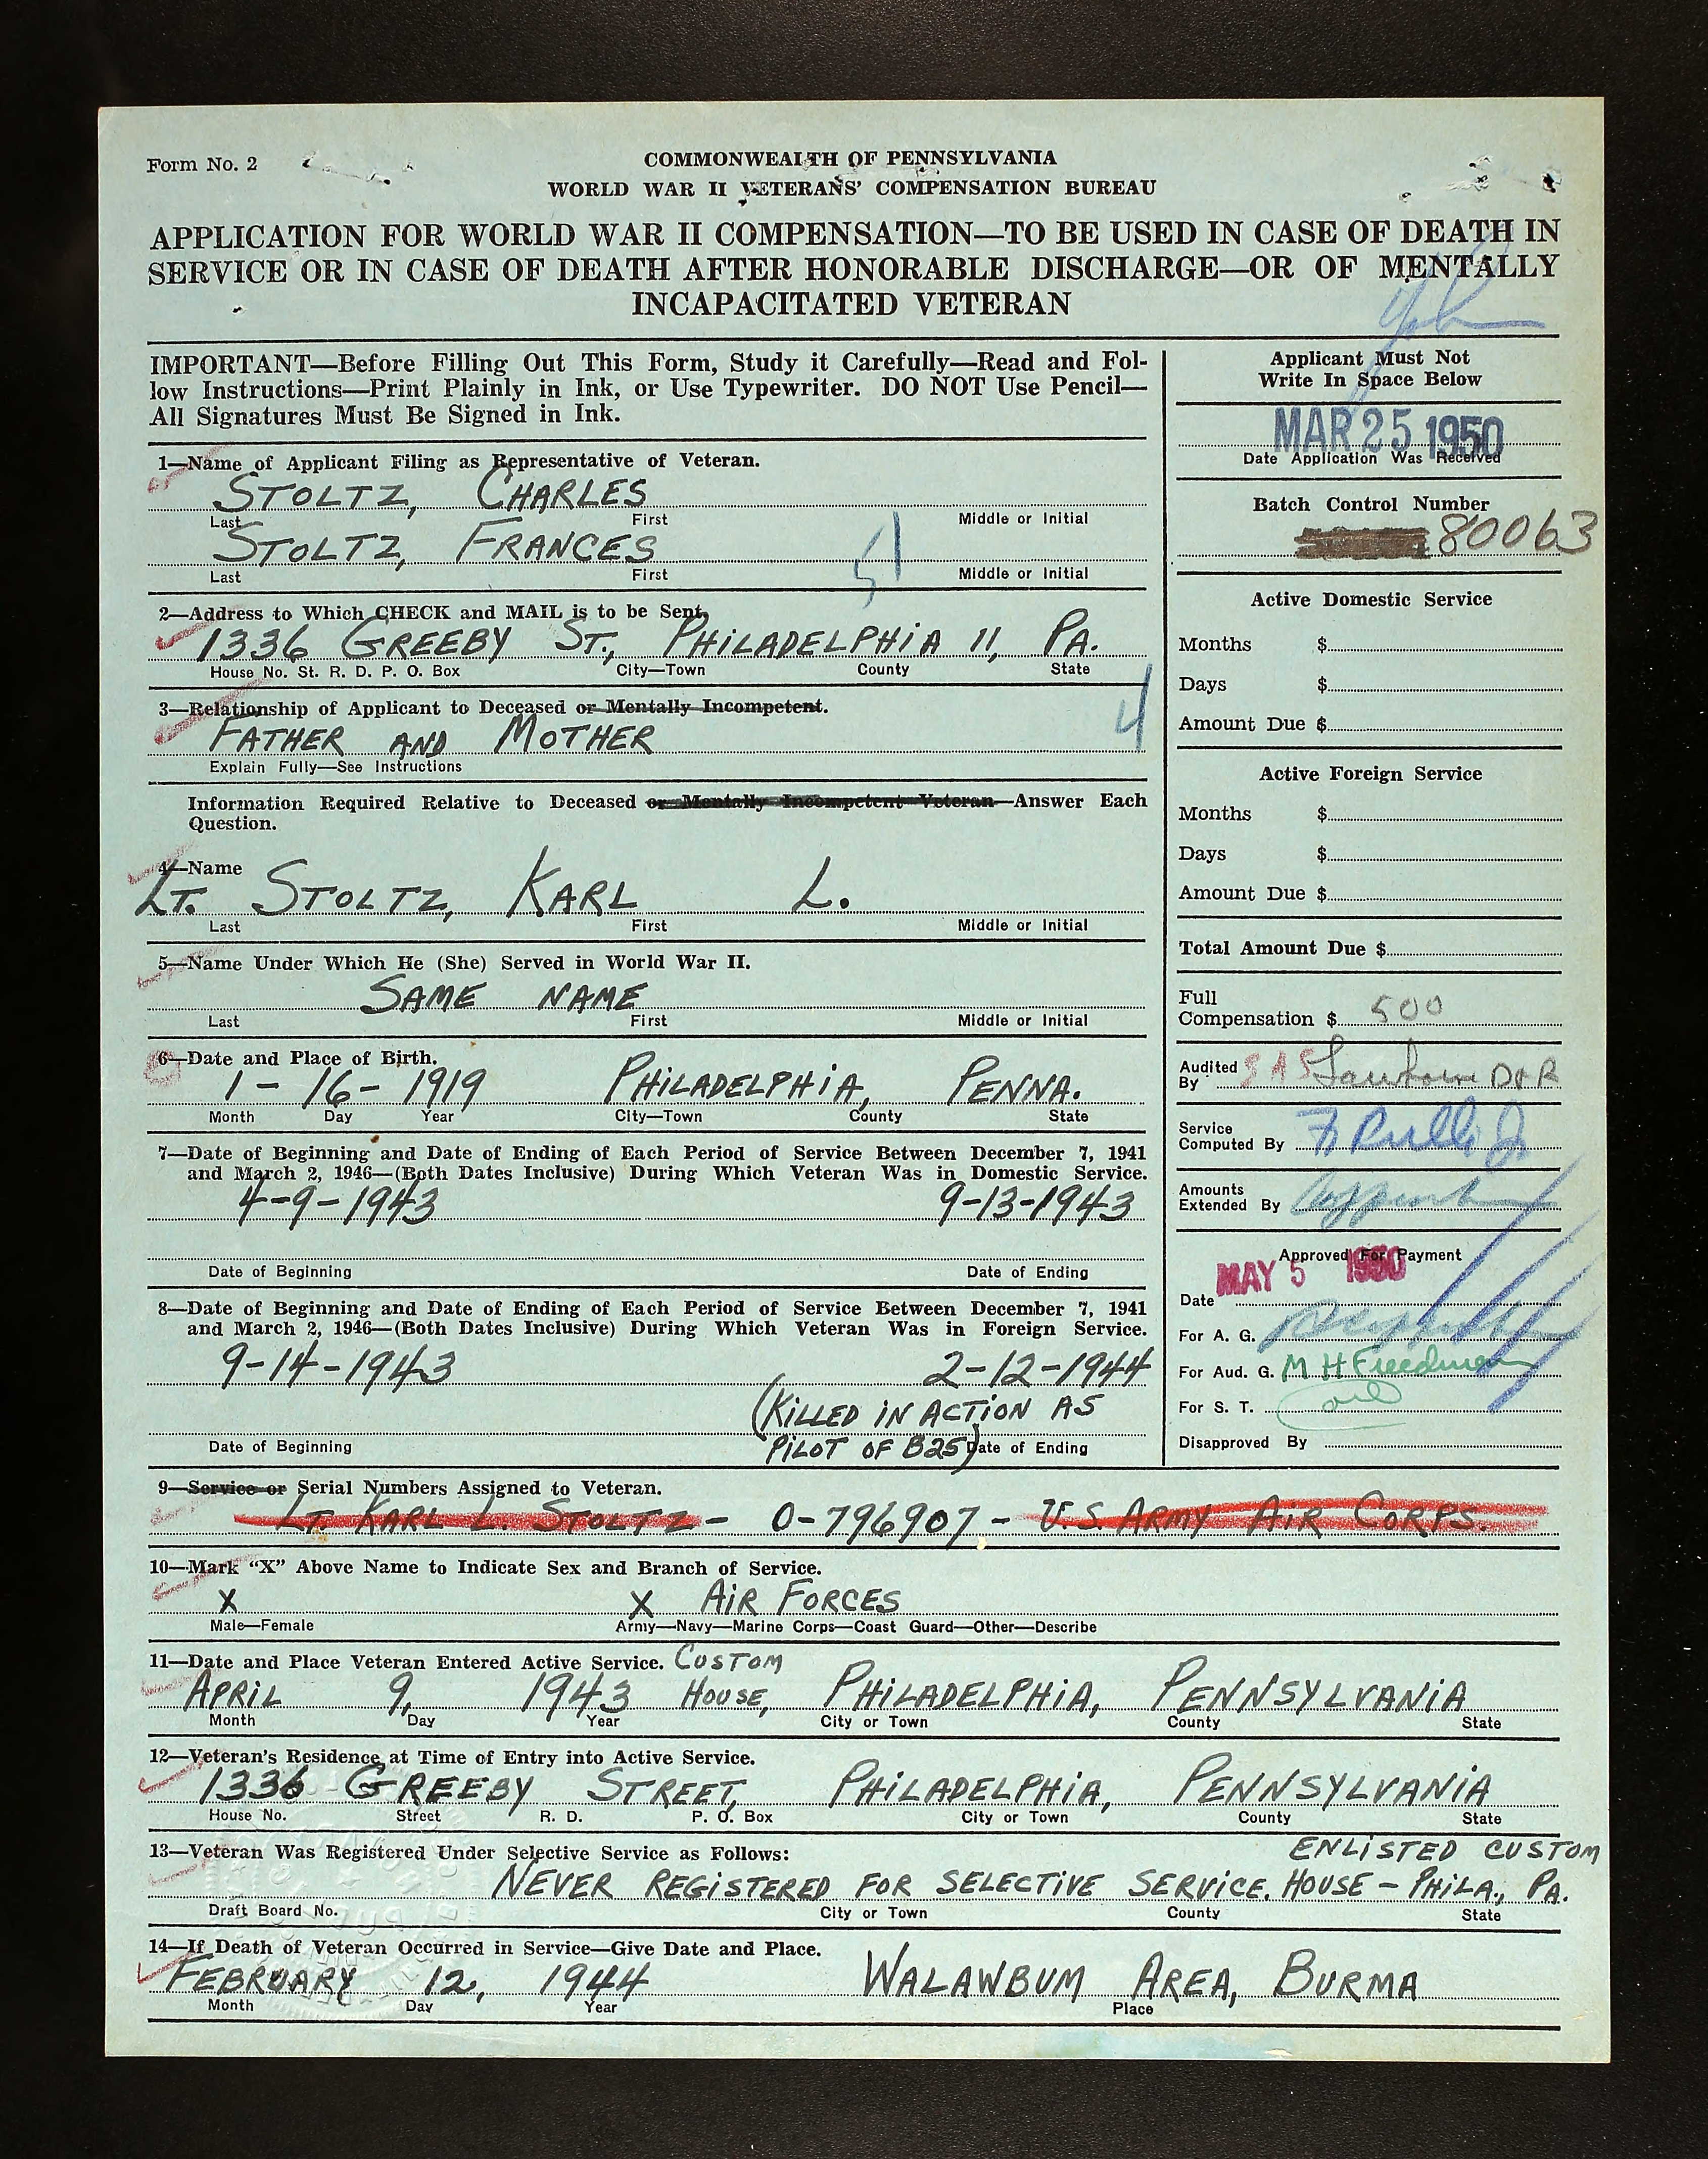 Form No. 2
COMMONWEALTH OF PENNSYLVANIA
WORLD WAR II VETERANS' COMPENSATION BUREAU
APPLICATION FOR WORLD WAR II COMPENSATION—TO BE USED IN CASE OF DEATH IN
SERVICE OR IN CASE OF DEATH AFTER HONORABLE DISCHARGE—OR OF MENTALLY
INCAPACITATED VETERAN
IMPORTANT—Before Filling Out This Form, Study it Carefully—Read and Fol-
low Instructions—Print Plainly in Ink, or Use Typewriter. DO NOT Use Pencil—
All Signatures Must Be Signed in Ink.
1—Name of Applicant Filing as Representative of Veteran.
STOLTZ, CHARLES
Last First Middle or Initial
STOLTZ, FRANCES
51
Last First Middle or Initial
2—Address to Which CHECK and MAIL is to be Sent.
1336 GREEBY ST., PHILADELPHIA 11, PA.
House No. St. R. D. P. O. Box City—Town County State
3—Relationship of Applicant to Deceased or Mentally Incompetent.
4
FATHER AND MOTHER
Explain Fully—See Instructions
Information Required Relative to Deceased or Mentally Incompetent Veteran—Answer Each
Question.
4—Name
LT. STOLTZ, KARL L.
Last First Middle or Initial
5—Name Under Which He (She) Served in World War II.
SAME NAME
Last First Middle or Initial
6—Date and Place of Birth.
1-16-1919 PHILADELPHIA, PENNA.
Month Day Year City—Town County State
7—Date of Beginning and Date of Ending of Each Period of Service Between December 7, 1941
and March 2, 1946—(Both Dates Inclusive) During Which Veteran Was in Domestic Service.
4-9-1943 9-13-1943
Date of Beginning Date of Ending
8—Date of Beginning and Date of Ending of Each Period of Service Between December 7, 1941
and March 2, 1946—(Both Dates Inclusive) During Which Veteran Was in Foreign Service.
9-14-1943 2-12-1944
(KILLED IN ACTION AS
PILOT OF B25)
Date of Beginning Date of Ending
Applicant Must Not
Write In Space Below
MAR 25 1950
Date Application Was Received
Batch Control Number
80063
Active Domestic Service
Months $
Days $
Amount Due $
Active Foreign Service
Months $
Days $
Amount Due $
Total Amount Due $
Full
Compensation $ 500
Audited
By SAS D&R
Service
Computed By
Amounts
Extended By
Approved For Payment
MAY 5 1950
Date
For A. G.
For Aud. G. M H Freedman
For S. T.
Disapproved By
9—Service or Serial Numbers Assigned to Veteran.
LT. KARL L. STOLTZ - O-796907 - U.S. ARMY AIR CORPS.
10—Mark "X" Above Name to Indicate Sex and Branch of Service.
X X AIR FORCES
Male—Female Army—Navy—Marine Corps—Coast Guard—Other—Describe
11—Date and Place Veteran Entered Active Service. CUSTOM
APRIL 9, 1943 HOUSE, PHILADELPHIA, PENNSYLVANIA
Month Day Year City or Town County State
12—Veteran's Residence at Time of Entry into Active Service.
1336 GREEBY STREET, PHILADELPHIA, PENNSYLVANIA
House No. Street R. D. P. O. Box City or Town County State
13—Veteran Was Registered Under Selective Service as Follows: ENLISTED CUSTOM
NEVER REGISTERED FOR SELECTIVE SERVICE. HOUSE - PHILA., PA.
Draft Board No. City or Town County State
14—If Death of Veteran Occurred in Service—Give Date and Place.
FEBRUARY 12, 1944 WALAWBUM AREA, BURMA
Month Day Year Place